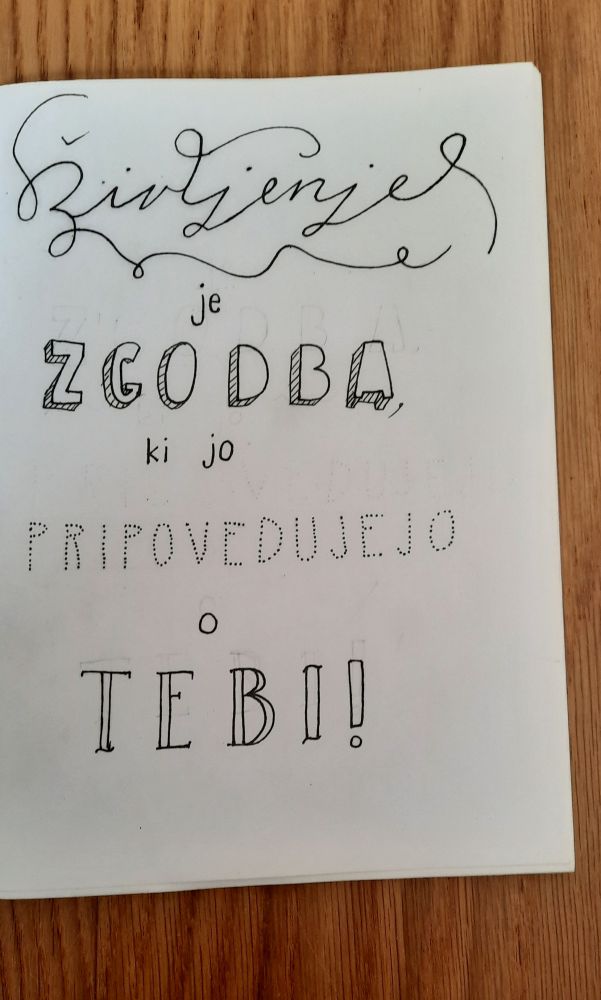 Življenje
je
ZGODBA,
ki jo
PRIPOVEDUJEJO
o
TEBI!